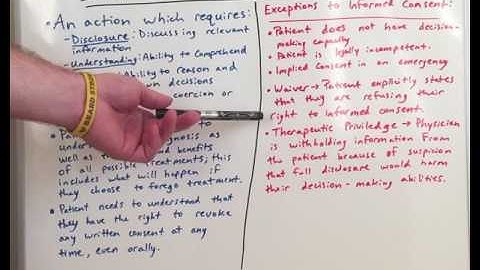 • An action which requires:
- Disclosure: Discussing relevant
information
- Understanding: Ability to Comprehend
Ability to reason and
own decisions
coercion or
to
understand diagnosis as
well as the and benefits
of all possible treatments; this
includes what will happen if
they choose to forego treatment.
• Patient needs to understand that
they have the right to revoke
any written consent at any
time, even orally.
Exceptions to Informed Consent:
• Patient does not have decision-
making capacity
• Patient is legally incompetent.
• Implied Consent in an emergency
• Waiver → Patient explicitly states
that they are refusing their
right to informed consent.
• Therapeutic Priviledge → Physician
is withholding information from
the patient because of suspicion
that full disclosure would harm
their decision-making abilities.
BEARD